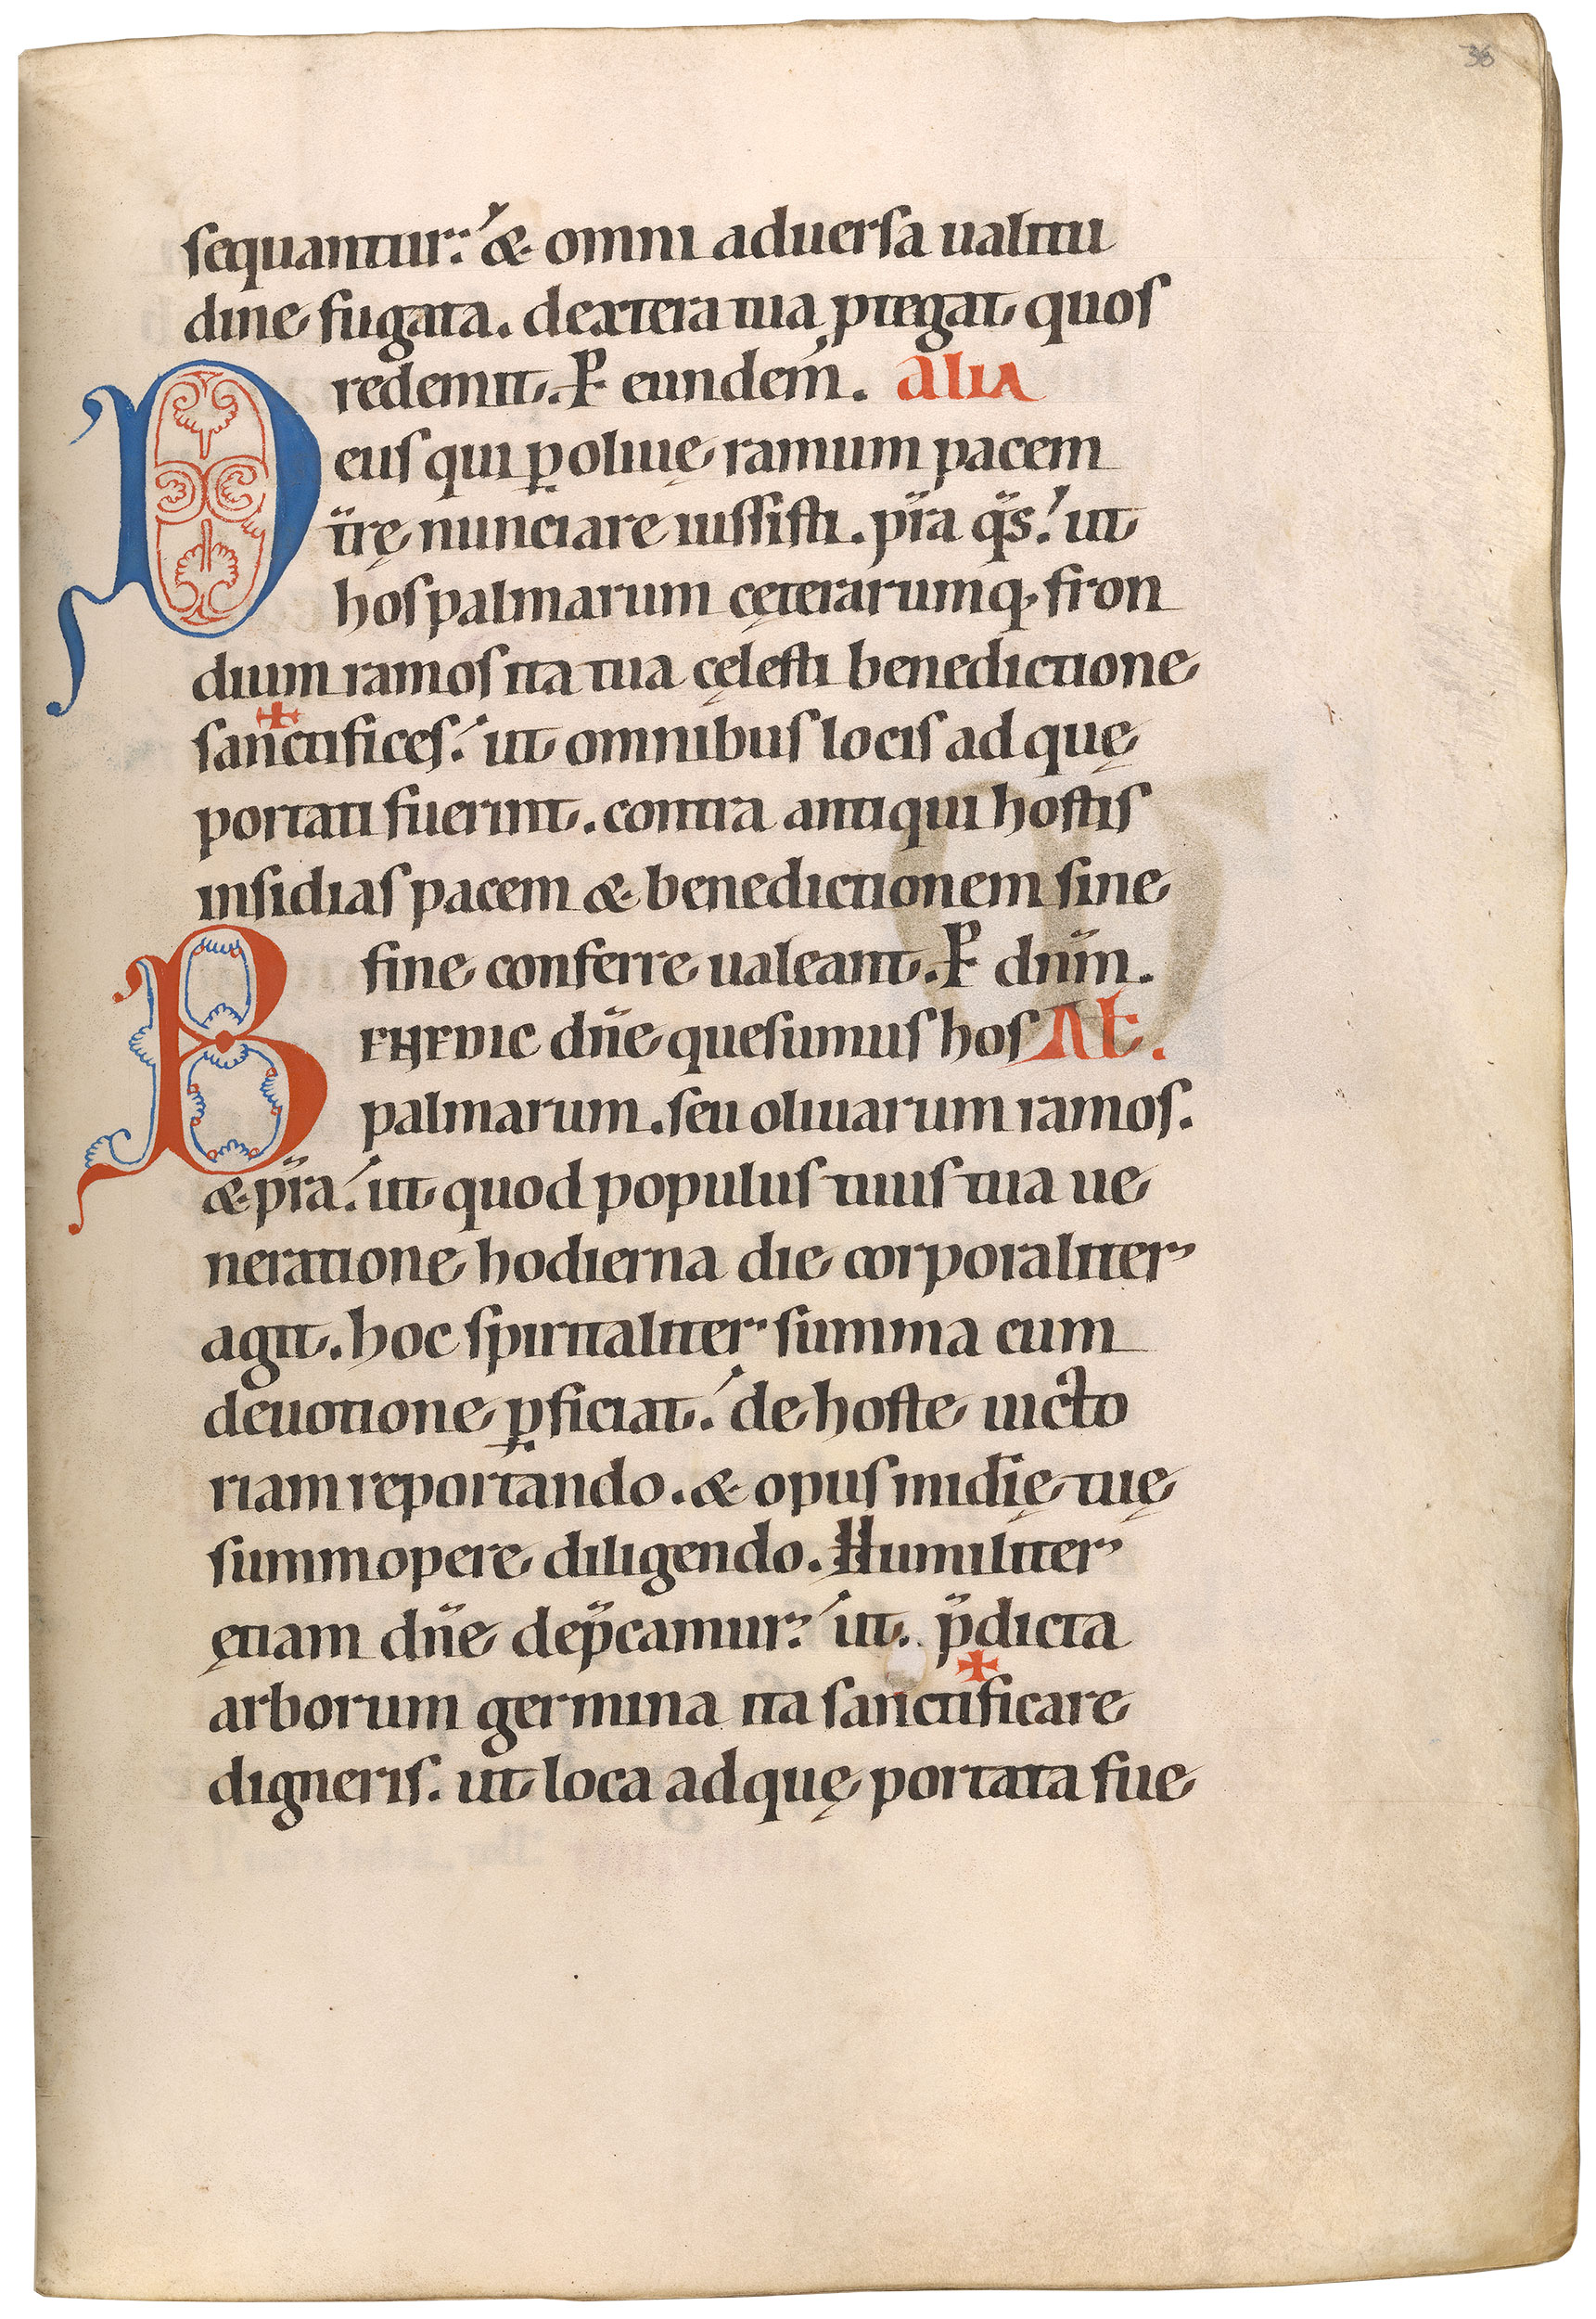 36
sequantur: & omni aduersa ualitu
dine fugata. dextera tua ptegat quos
redemit. P eundem̄. alia
Deus qui p̲ oliuę ramum pacem
t̄rę nunciare iussisti. p̄ra q̄s. ut
hos palmarum cęterarumq. fron
dium ramos ita tua cęlesti benedictione
✠
sanctifices. ut omnibus locis ad quę
portati fuerint. contra antiqui hostis
insidias pacem & benedictionem sine
fine conferre ualeant. P dn̄m.
BENEDIC dn̄e quesumus hos Alt.
palmarum. seu oliuarum ramos.
& p̄ra. ut quod populus tuus tua ue
neratione hodierna die corporaliter
agit. hoc spiritaliter summa cum
deuotione p̲ficiat. de hoste uicto
riam reportando. & opus mid̄ię tuę
summopere diligendo. Humiliter
ętiam dn̄e dep̄camur: ut. p̄dicta
✠
arborum germina ita sanctificare
digneris. ut loca ad quę portata fue